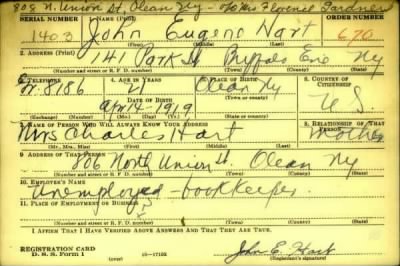 808 N. Union St. Olean Ny - c/o Mrs Florence Gardner
SERIAL NUMBER 1. NAME (Print) ORDER NUMBER
1403 John Eugene Hart 670
(First) (Middle) (Last)
2. ADDRESS (Print)
141 Park St Buffalo Erie Ny
(Number and street or R. F. D. number) (Town) (County) (State)
3. TELEPHONE 4. AGE IN YEARS 5. PLACE OF BIRTH 6. COUNTRY OF CITIZENSHIP
8186 21 Olean Ny
DATE OF BIRTH (Town or county)
Apr 14 1919 U S
(Exchange) (No.) (Mo.) (Day) (Yr.) (State or country)
7. NAME OF PERSON WHO WILL ALWAYS KNOW YOUR ADDRESS 8. RELATIONSHIP OF THAT PERSON
Mrs Charles Hart Mother
(Mr., Mrs., Miss) (First) (Middle) (Last)
9. ADDRESS OF THAT PERSON
806 North Union St. Olean Ny
(Number and street or R. F. D. number) (Town) (County) (State)
10. EMPLOYER'S NAME
Unemployed - bookkeeper
11. PLACE OF EMPLOYMENT OR BUSINESS
(Number and street or R. F. D. number) (Town) (County) (State)
I AFFIRM THAT I HAVE VERIFIED ABOVE ANSWERS AND THAT THEY ARE TRUE.
REGISTRATION CARD
D. S. S. Form 1 (over) 16-17105 John E. Hart
(Registrant's signature)